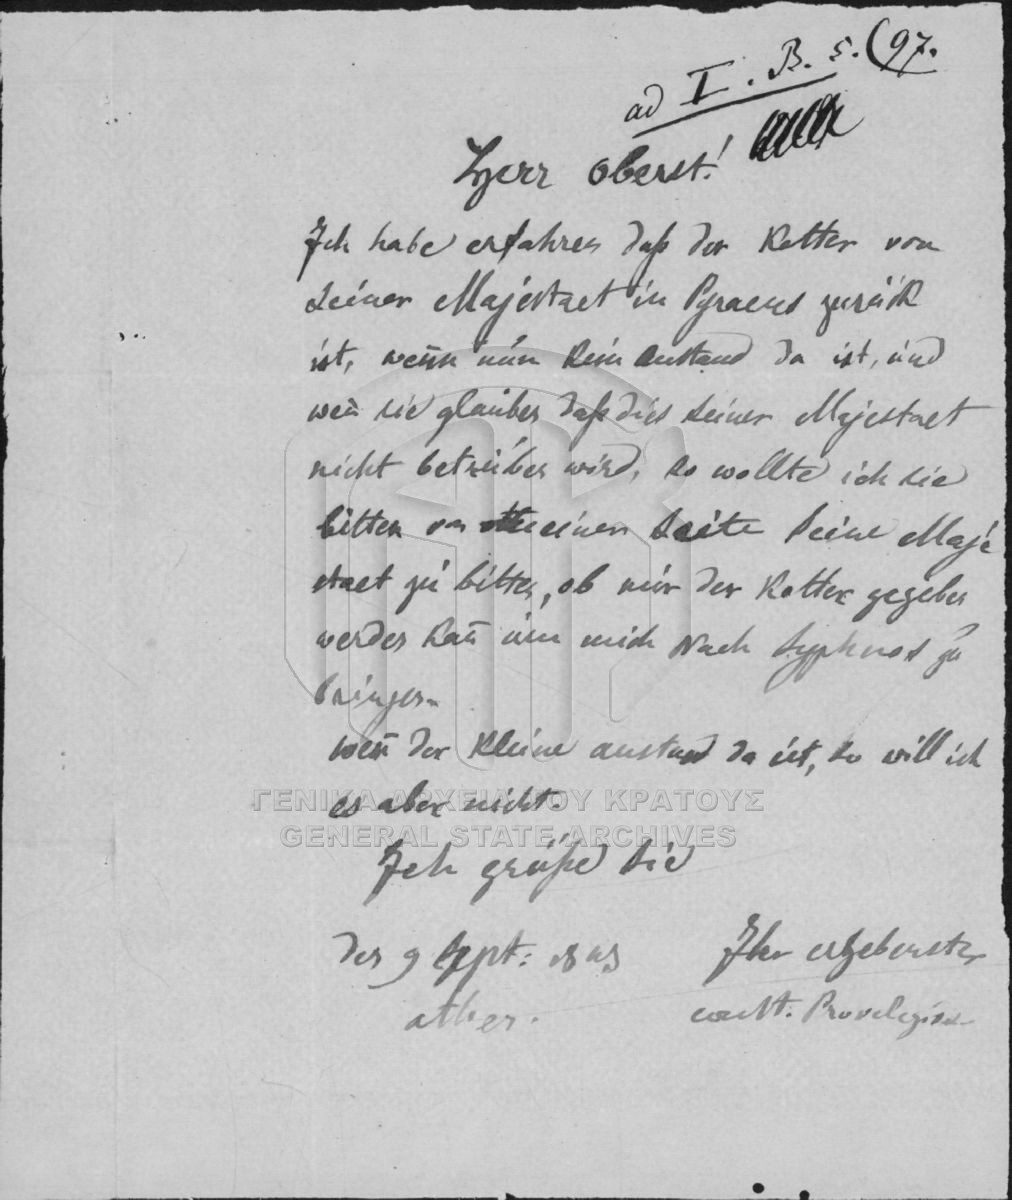 ad I. B. 5. (97.
Herr Oberst!
Ich habe erfahren daß der Kotter von
Seiner Majestaet in Pyraeus zurück
ist, wenn nun kein anstand da ist, und
wen̄ sie glauben daß dies Seiner Majestaet
nicht betrüben wird, so wollte ich sie
bitten von meiner Seite Seine Maje
staet zu bitten, ob mir der Kotter gegeben
werden kan̄ um mich Nach Syphnos zu
bringen.
wen̄ der Kleine anstand da ist, so will ich
es aber nicht.
ΓΕΝΙΚΑ ΑΡΧΕΙΑ ΤΟΥ ΚΡΑΤΟΥΣ
GENERAL STATE ARCHIVES
Ich grüße Sie
den 9 Sept: 1843
Ihr ergebenster
athen.